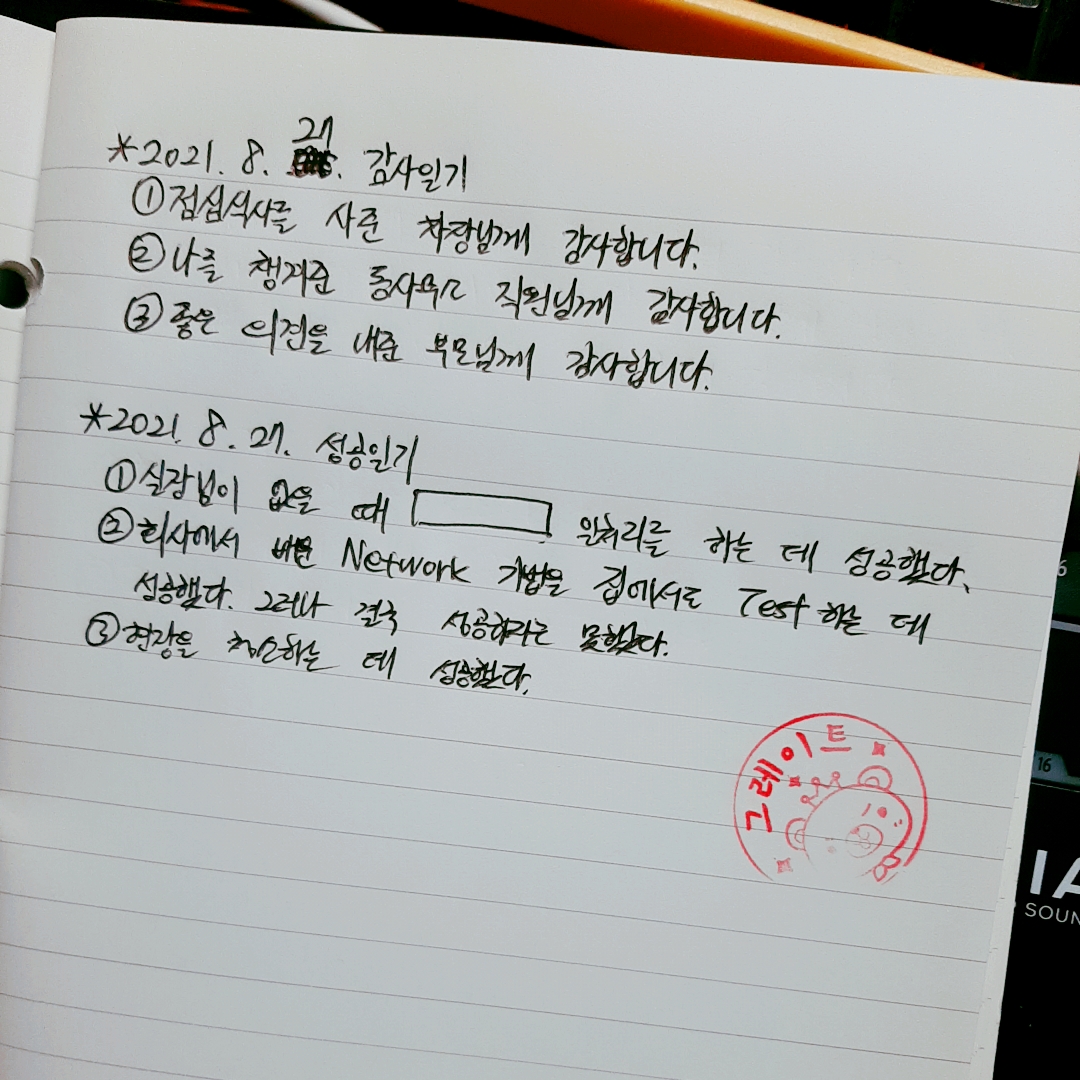 *2021. 8. 27. 감사일기
①점심식사를 사준 차장님께 감사합니다.
②나를 챙겨준 동사무소 직원님께 감사합니다.
③좋은 의견을 내준 부모님께 감사합니다.
*2021. 8. 27. 성공일기
①실장님이 없을 때 일처리를 하는 데 성공했다.
②회사에서 배운 Network 기법을 집에서도 Test 하는 데
성공했다. 그러나 결국 성공하지는 못했다.
③현장을 청소하는 데 성공했다.
그레이트
16
SOUN